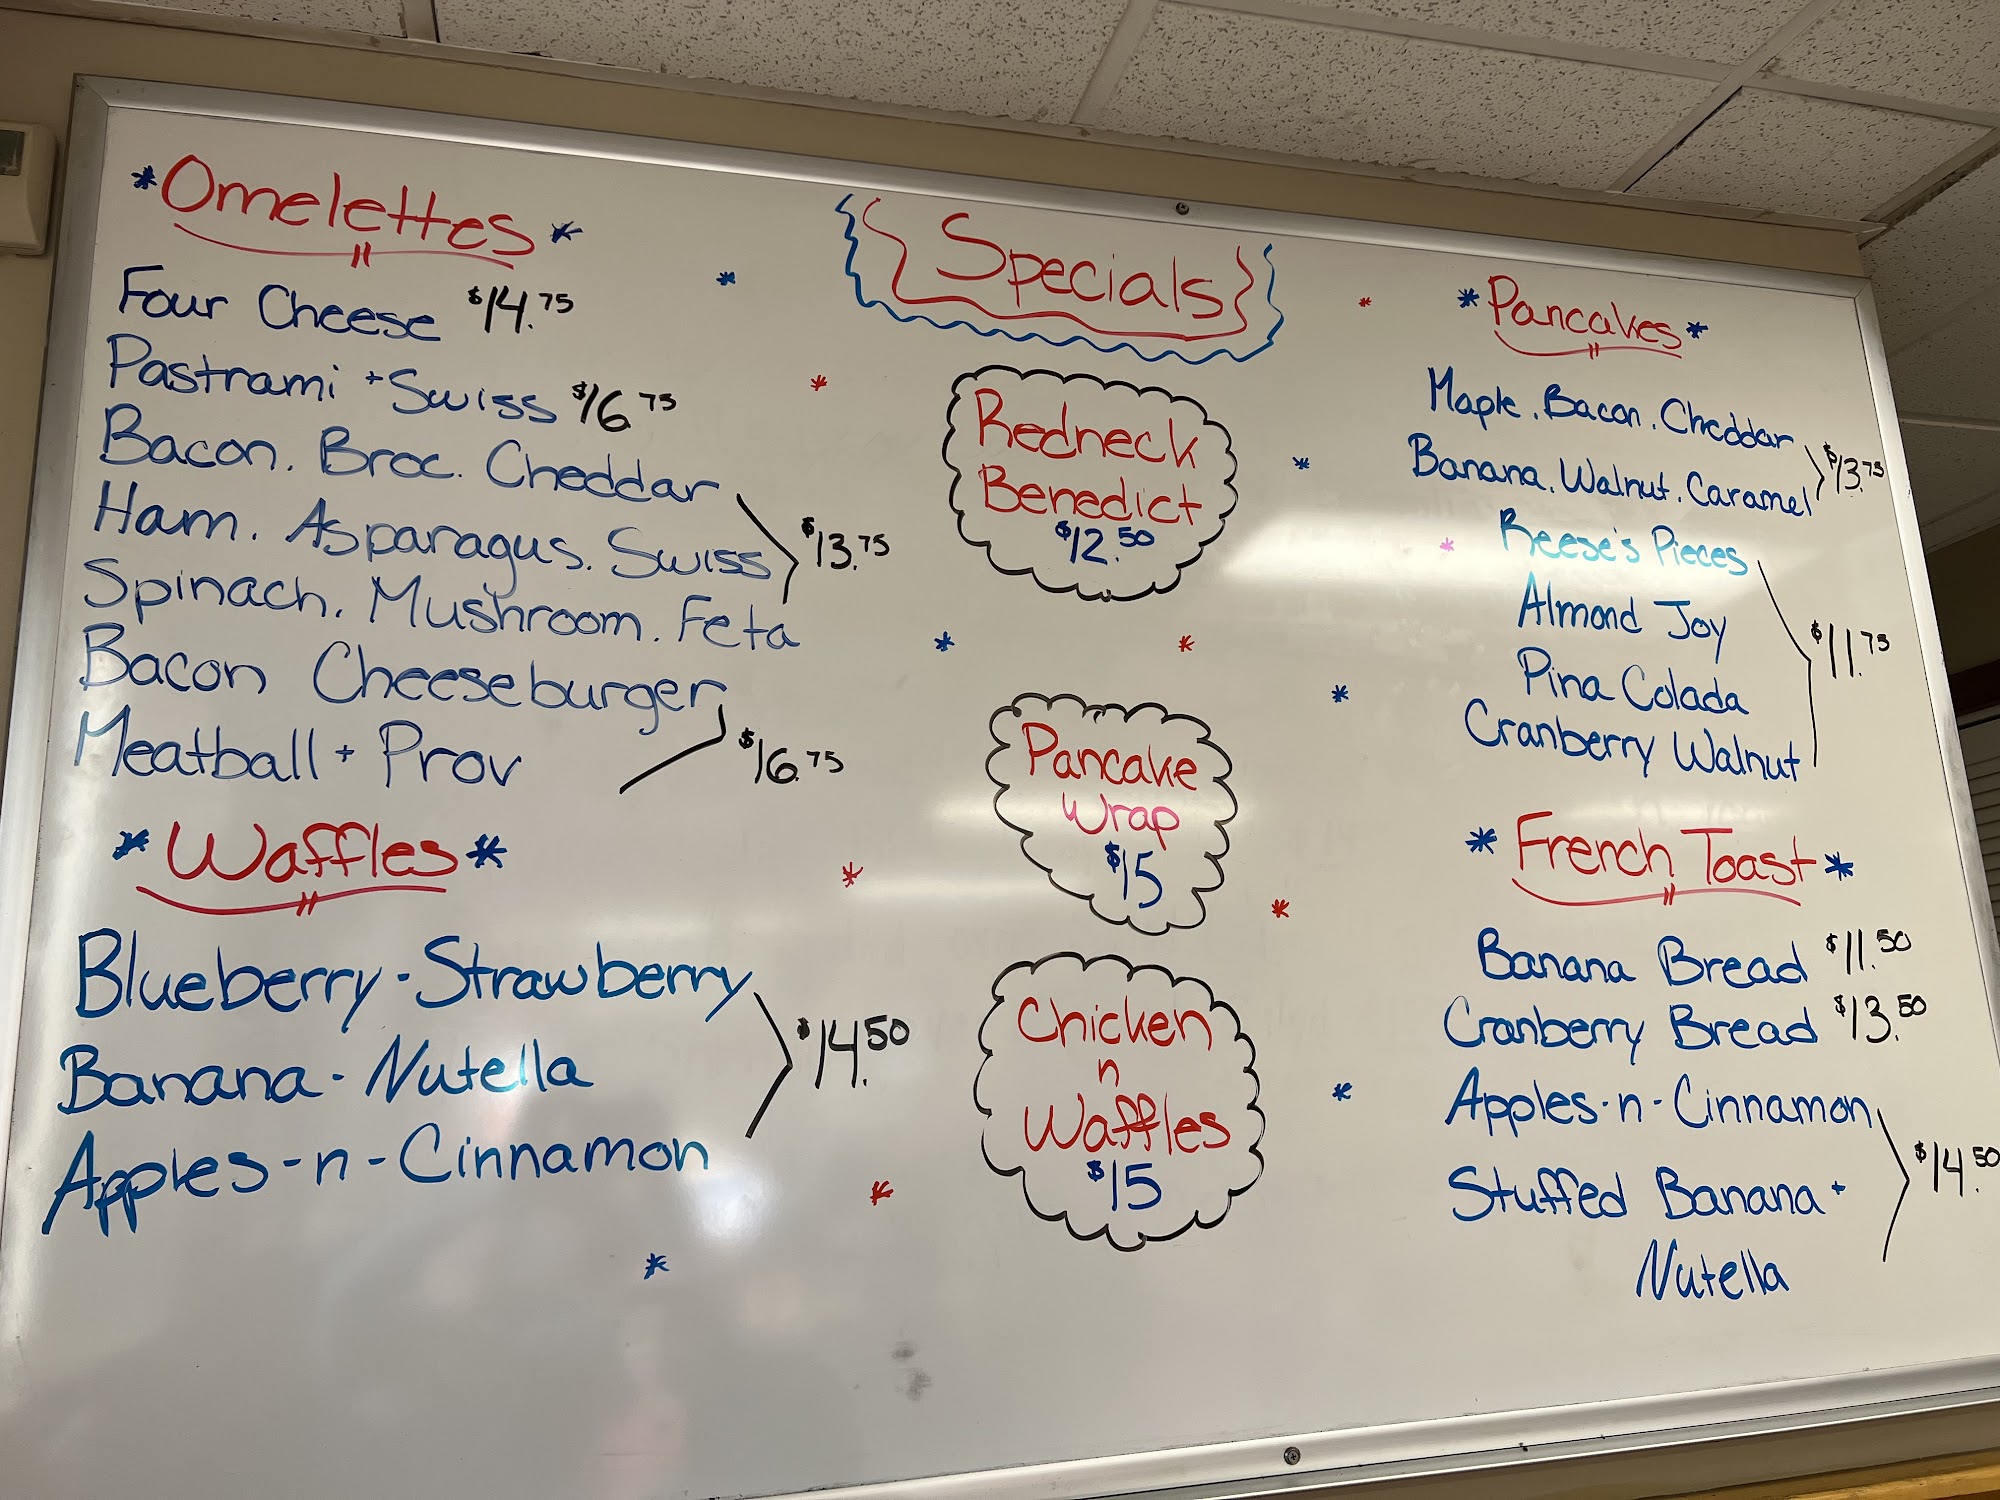 *Omelettes*
Four Cheese $14.75
Pastrami + Swiss $16.75
Bacon. Broc. Cheddar
Ham. Asparagus. Swiss
Spinach. Mushroom. Feta
$13.75
Bacon Cheeseburger
Meatball + Prov
$16.75
*Waffles*
Blueberry - Strawberry
Banana - Nutella
Apples-n-Cinnamon
$14.50
Specials
Redneck
Benedict
$12.50
Pancake
Wrap
$15
Chicken
n
Waffles
$15
*Pancakes*
Maple. Bacon. Cheddar
Banana. Walnut. Caramel
$13.75
Reese's Pieces
Almond Joy
Pina Colada
Cranberry Walnut
$11.75
*French Toast*
Banana Bread $11.50
Cranberry Bread $13.50
Apples-n-Cinnamon
Stuffed Banana +
Nutella
$14.50